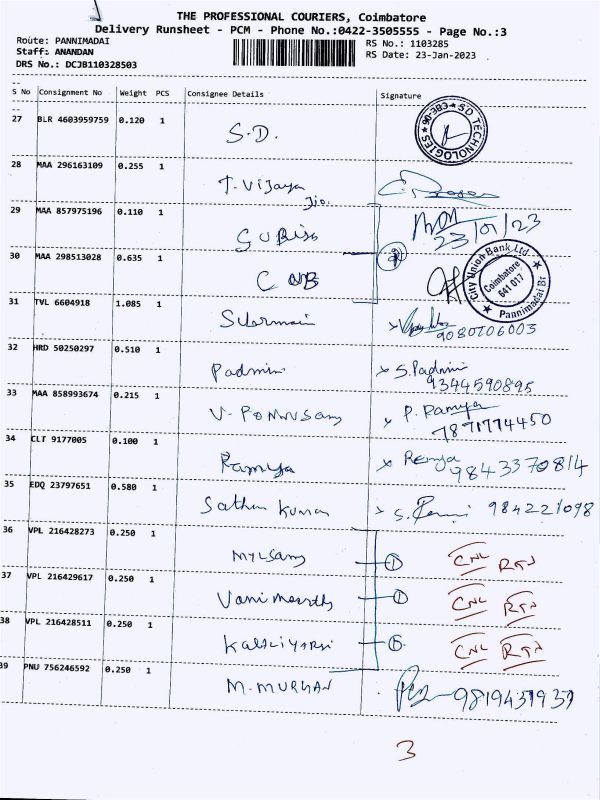 THE PROFESSIONAL COURIERS, Coimbatore
Delivery Runsheet - PCM - Phone No.:0422-3505555 - Page No.:3
Route: PANNIMADAI RS No.: 1103285
Staff: ANANDAN RS Date: 23-Jan-2023
DRS No.: DCJB110328503
S No Consignment No Weight PCS Consignee Details Signature
27 BLR 4603959759 0.120 1 S.D. 90-383 ★ SD TECHNOLOGIES ★
28 MAA 296163109 0.255 1 T. Vijaya
Jio.
29 MAA 857975196 0.110 1 23/01/23
30 MAA 298513028 0.635 1 CUB City Union Bank Ltd. Coimbatore 641 017 ★ Pannimadai Br ★
31 TVL 6604918 1.085 1 9080706003
32 HRD 50250297 0.510 1 Padmini × S. Padmini
9344590895
33 MAA 858993674 0.215 1 V. Ponnusamy × P. Ramya
7871774450
34 CLT 9177005 0.100 1 Ramya × Remya 9843370814
35 EDQ 23797651 0.580 1 Sathish Kumar × S. 984221098
36 VPL 216428273 0.250 1 Mylsamy CNL RTN
37 VPL 216429617 0.250 1 CNL RTN
38 VPL 216428511 0.250 1 CNL RTN
39 PNU 756246592 0.250 1 M. MURUGAN 9819431937
3